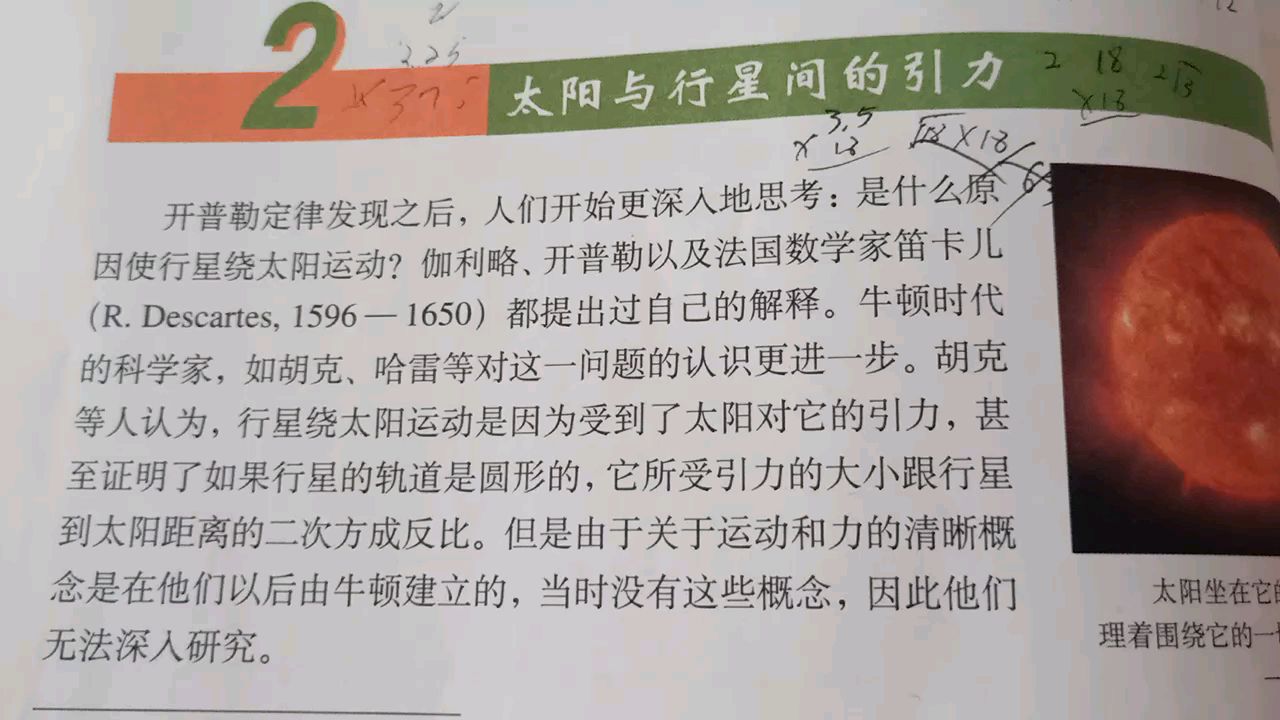 2 太阳与行星间的引力
3.5
×18
18
×18
开普勒定律发现之后，人们开始更深入地思考：是什么原
因使行星绕太阳运动？伽利略、开普勒以及法国数学家笛卡儿
（R. Descartes, 1596—1650）都提出过自己的解释。牛顿时代
的科学家，如胡克、哈雷等对这一问题的认识更进一步。胡克
等人认为，行星绕太阳运动是因为受到了太阳对它的引力，甚
至证明了如果行星的轨道是圆形的，它所受引力的大小跟行星
到太阳距离的二次方成反比。但是由于关于运动和力的清晰概
念是在他们以后由牛顿建立的，当时没有这些概念，因此他们
无法深入研究。
太阳坐在它
理着围绕它的一